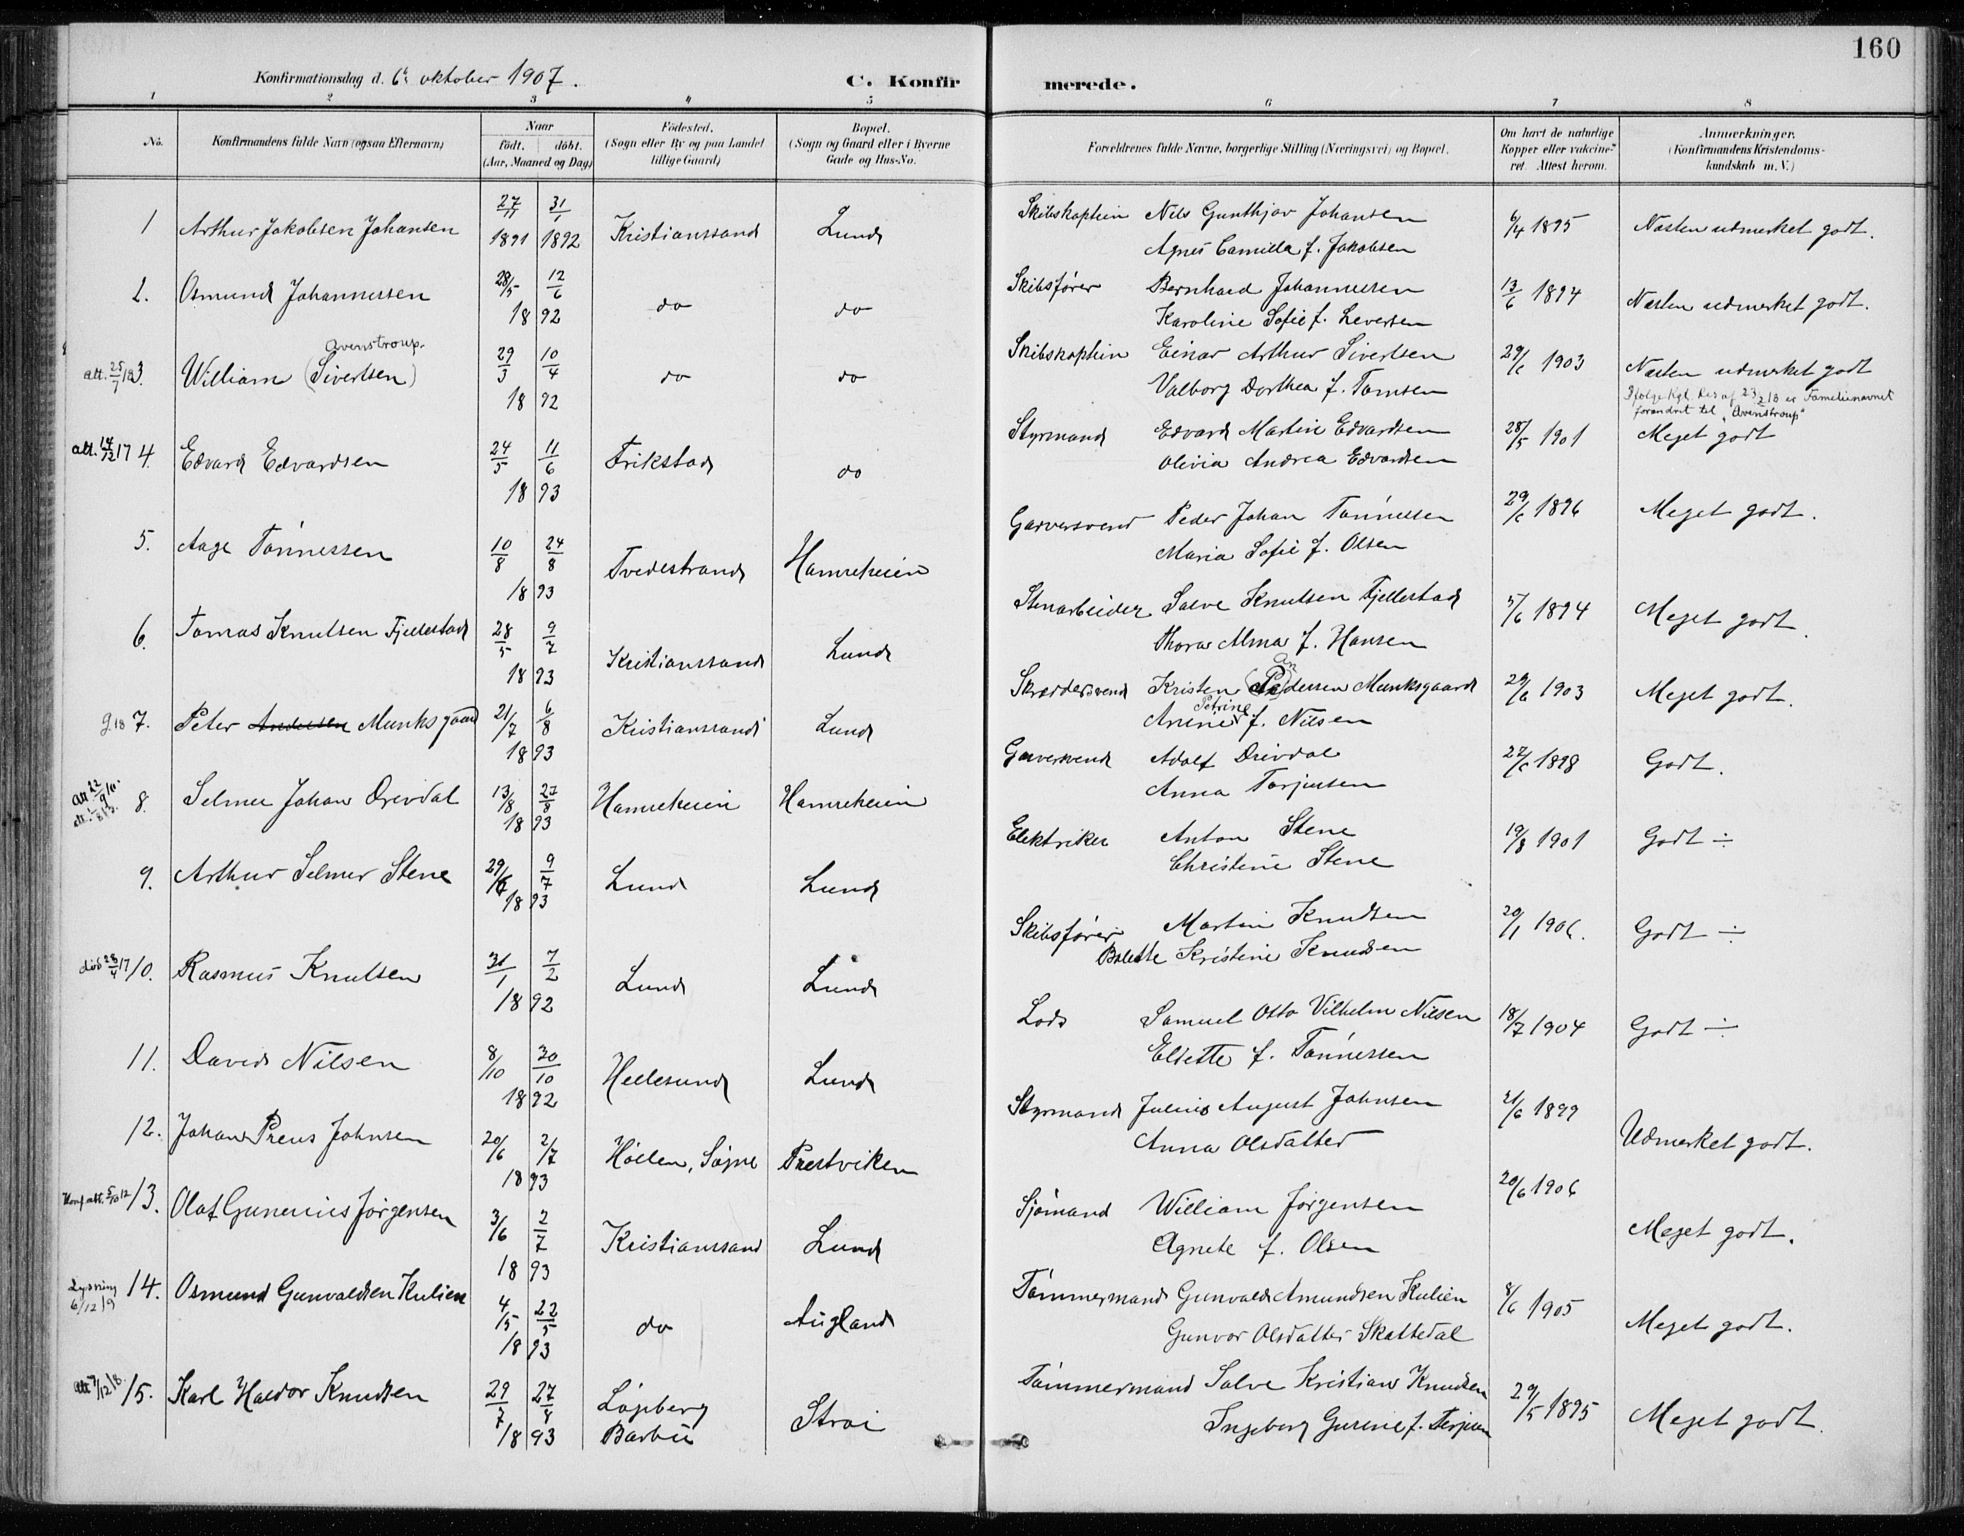 160
Konfirmationsdag d. 6te oktober 1907.
C. Konfirmerede.
1 2 3 4 5 6 7 8
No. | Konfirmandens fulde Navn (ogsaa Efternavn) | Naar født. døbt. (Aar, Maaned og Dag) | Fødested. (Sogn eller By og paa Landet tillige Gaard) | Bopæl. (Sogn og Gaard eller i Byerne Gade og Hus-No. | Forældrenes fulde Navne, borgerlige Stilling (Næringsvei) og Bopæl. | Om havt de naturlige Kopper eller vakcineret. Attest herom. | Anmærkninger. (Konfirmandens Kristendomskundskab m. V.)
1 Arthur Jakobsen Johansen 27/11 1891 31/1 1892 Kristianssand Lund Skibskaptein Nils Gunthjov Johansen 6/4 1895 Næsten udmerket godt.
Agnes Camilla f. Jakobsen
2. Osmund Johannessen 28/5 12/6 1892 do do Skibsfører Bernhard Johannessen 13/6 1894 Næsten udmerket godt.
Karoline Sofie f. Severtsen
att. 25/7 18 3. William (Sivertsen) Avenstroup. 29/3 10/4 1892 do do Skibskaptein Einar Arthur Sivertsen 29/6 1903 Næsten udmerket godt
Valborg Dorthea f. Tomsen
Ifølge Kgl. Res af 23/2 18 er Familienavnet
forandret til "Avenstroup"
att. 14/12 17 4. Edvard Edvardsen 24/5 11/6 1893 Frikstad do Styrmand Edvard Martin Edvardsen 28/5 1901 Meget godt
Olivia Andrea Edvardsen
5. Aage Tønnessen 10/8 24/8 1893 Tvedestrand Hamreheien Garversvend Peder Johan Tønnessen 29/6 1896 Meget godt.
Maria Sofie f. Olsen
6. Tomas Knutsen Fjellestad 28/5 9/7 1893 Kristianssand Lund Stenarbeider Salve Knutsen Fjellestad 5/6 1894 Meget godt.
Thora Alma f. Hansen
7. Peter Andersen Munksgaard 21/7 6/8 1893 Kristianssand Lund Skræddersvend Kristen (Pedersen An Munksgaard 29/6 1903 Meget godt.
Anine Petrine f. Nilsen
8. Selmer Johan Drivdal 13/8 27/8 1893 Hamreheien Hamreheien Garversvend Adolf Drivdal 27/6 1898 Godt.
Anna Torjussen
9. Arthur Selmer Stene 29/6 9/7 1893 Lund Lund Elektriker Anton Stene 19/8 1901 Godt ÷
Christine Stene
død 28/4 17 10. Rasmus Knutsen 31/1 7/2 1892 Lund Lund Skibsfører Martin Knudsen 20/1 1906. Godt ÷
Bolette Kristine Knudsen
11. David Nilsen 8/10 30/10 1892 Hellesund Lund Lods Samuel Otto Vilhelm Nilsen 18/7 1904 Godt ÷
Elsette f. Tønnessen
12. Johan Preus Johnsen 20/6 2/7 1893 Høllen, Søgne Prestviken Styrmand Julius August Johnsen 21/6 1899 Udmerket godt.
Anna Olsdatter
Konf. att. 5/10 12 13. Olaf Gunerius Jørgensen 3/6 2/7 1893 Kristianssand Lund Sjømand William Jørgensen 20/6 1906 Meget godt.
Agnete f. Olsen
Lysning 6/12 19 14. Osmund Gunvaldsen Kulien 4/5 22/5 1893 do Augland Tømmermand Gunvald Amundsen Kulien 8/6 1905 Meget godt.
Gunvor Olsdatter Skattedal
att 7/12 18. 15. Karl Haldor Knudsen 29/7 27/8 1893 Løgberg Barbu Strai Tømmermand Salve Kristian Knudsen 29/5 1895 Meget godt.
Ingeborg Gurine f. Terjesen